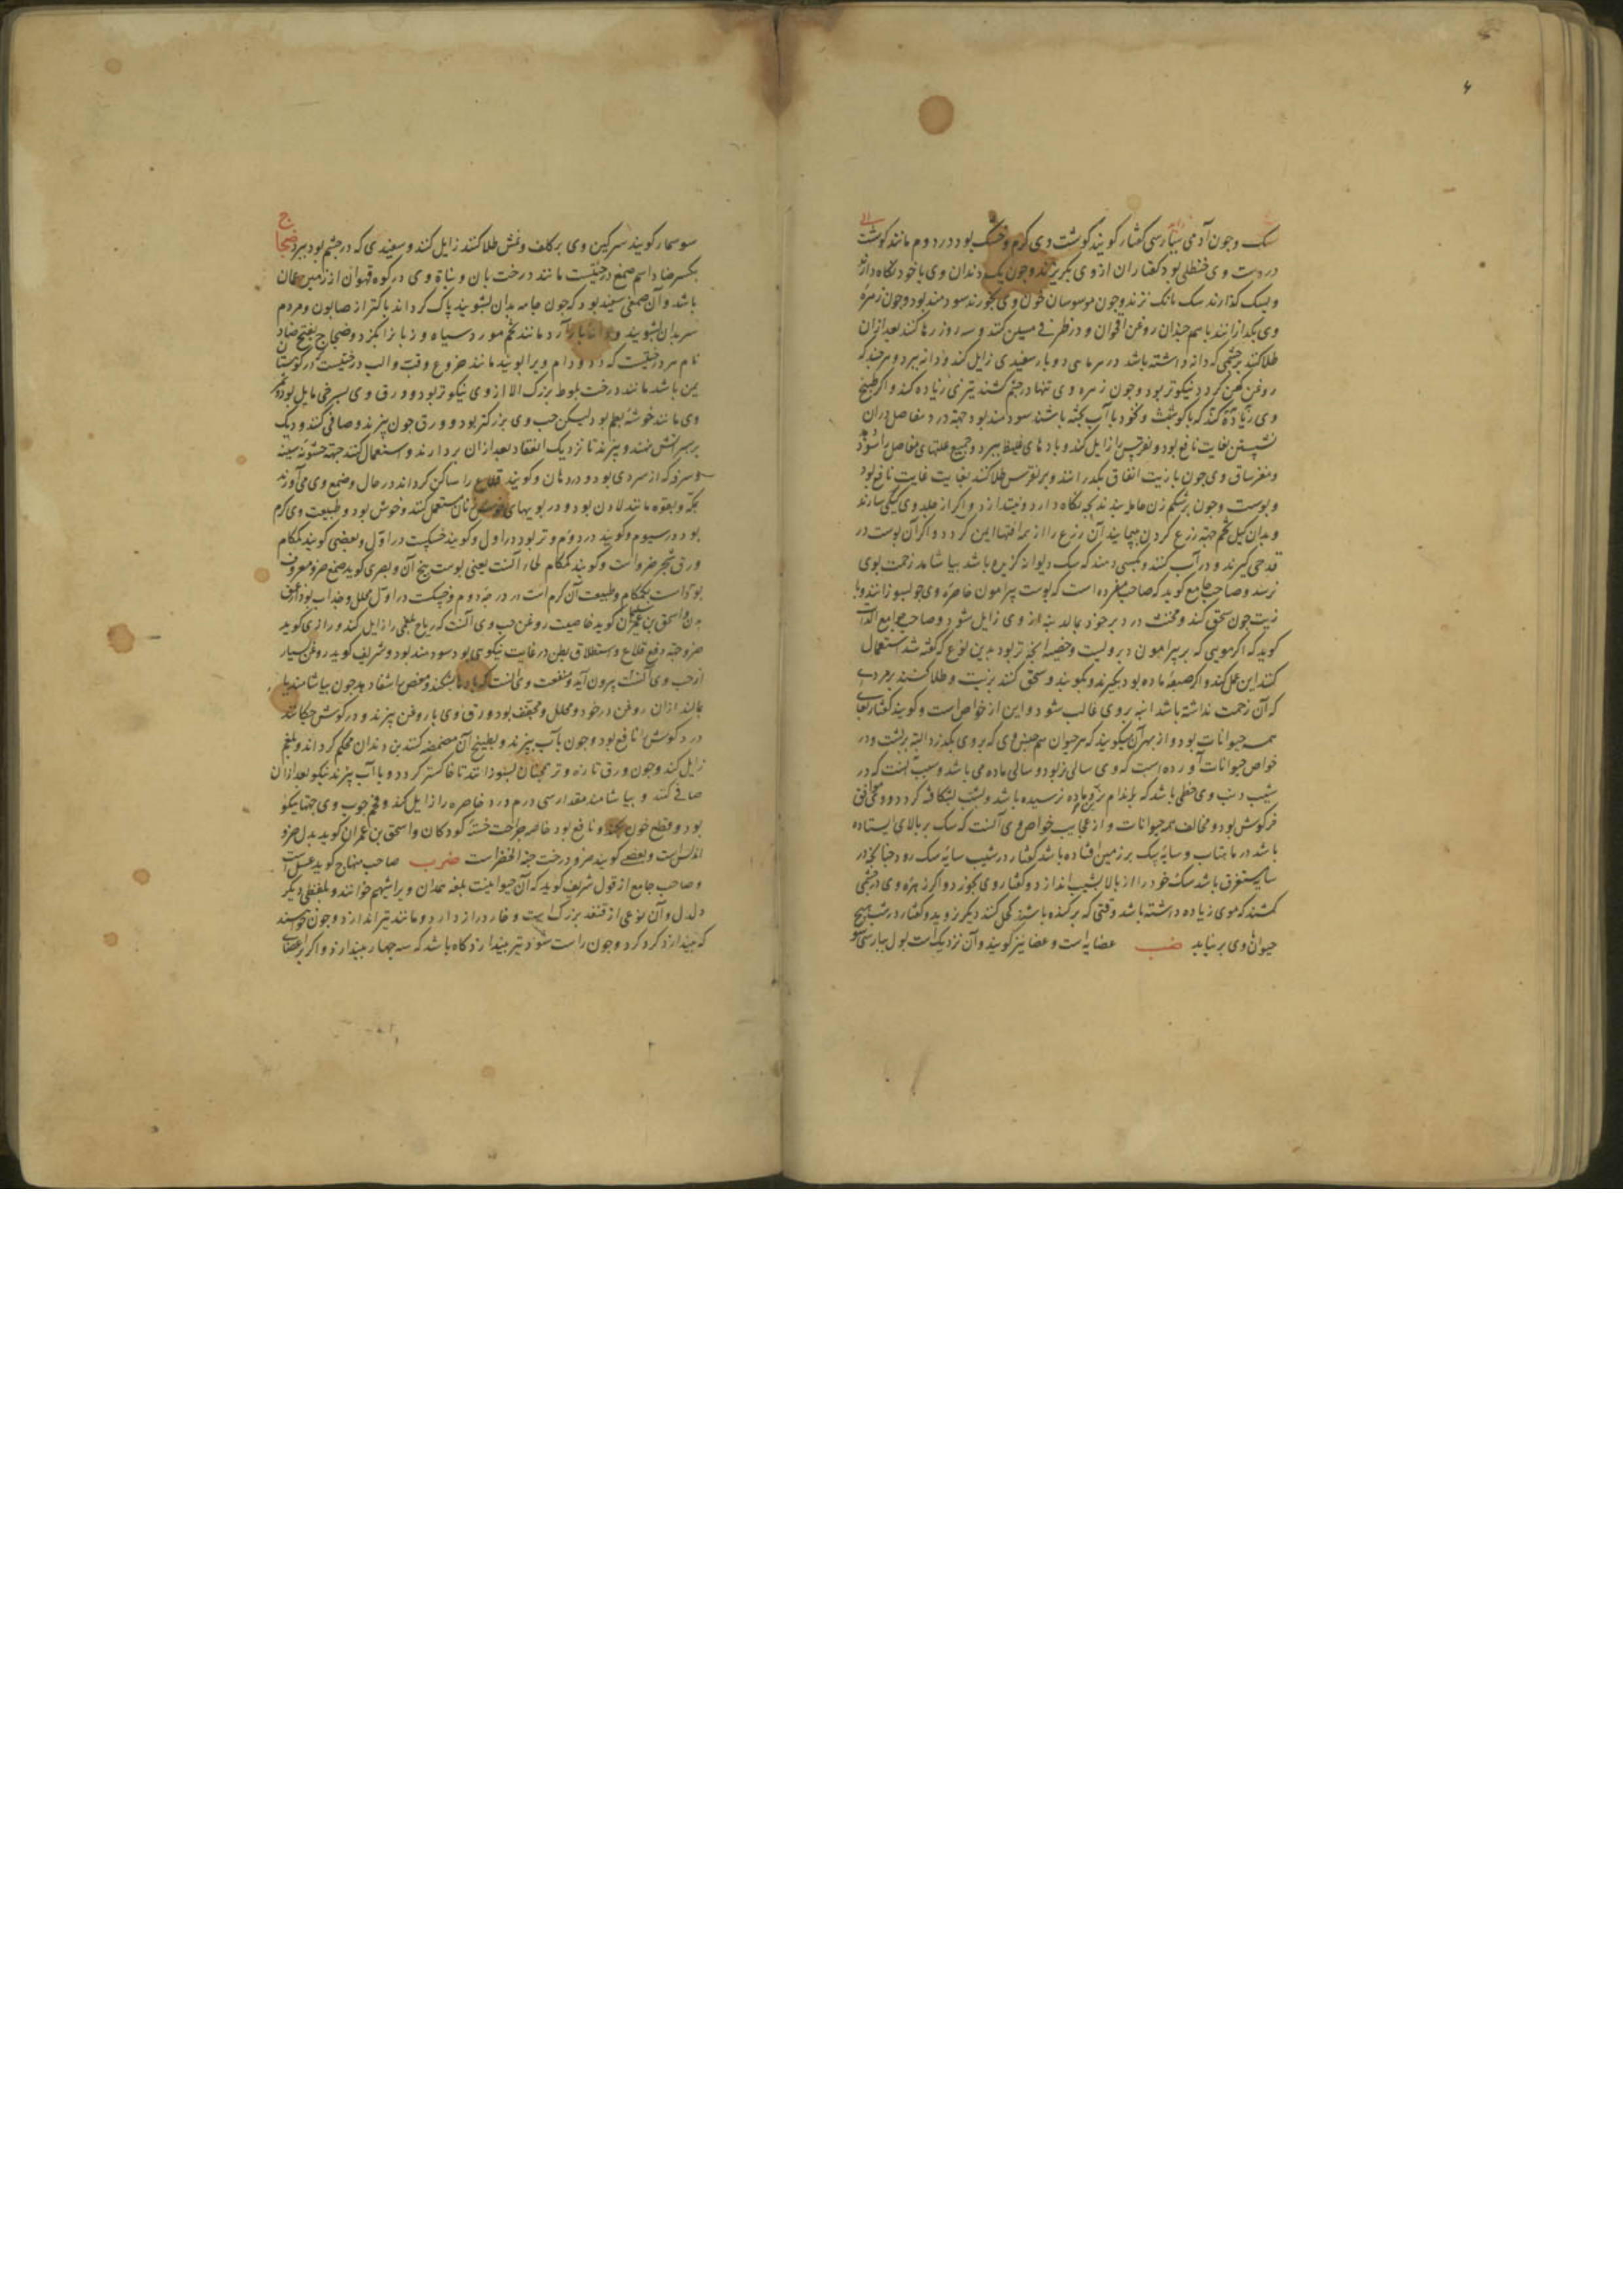 سک وجون آدمی بپارسی کفتار کویند کوشت وی کرم وخشک بود در دوم مانند کوشت
در دست وی حنظلی بود کفتاران از وی بکریزند وجون یک دندان وی باخود نکاه دارند
وبسک کذارند سک بانک نزند وجون موسوسان خون وی بخورند سودمند بود وجون زهره
وی بکدازانند باسم جندان روغن اقحوان ودر ظرفی مسین کنند وسه روز رها کنند بعد ازان
طلا کنند برجشمی که دانه داشته باشد در سر ماهی دو بار سفیدی زایل کند ودانه ببرد وهرجند که
روغن کهن کردد نیکوتر بود وجون زهره وی تنها درجشم کشند تیزی زیاده کند واکر طبیخ
وی زیاده کند که با کوشت ونخود با آب پخته باشند سودمند بود جهة درد مفاصل ودران
نشستن بغایت نافع بود ونقرس را زایل کند وبادهای غلیظ ببرد وجمیع علتهای مفاصل را سود دهد
ومغز ساق وی جون با زیت انفاق بکدازانند وبر نقرس طلا کنند بغایت غایت نافع بود
وپوست وجون برشکم زن حامل بندند بجه نکاه دارد ونیندازد واکر از جلد وی کیلی سازند
وبدان کیل تخم جهة زرع کردن بپیمایند آن زرع را از همه آفتها ایمن کردد واکر آن پوست در
قدحی کیرند ودر آب کنند وبکسی دهند که سک دیوانه کزیده باشد بیاشامد زحمت بوی
نرسد وصاحب جامع کوید که صاحب مفرده است که پوست پیرامون خاصره وی جو بسوزانند وبا
زیت جون سحق کنند ومخنث در دبر خود بمالد بنه از وی زایل شود وصاحب جوامع الذات
کوید که اکر مویی که بر پیرامون دبر ولیت وخصیه انجه نر بود بدین نوع که کفته شد استعمال
کنند این عمل کند واکر صبغه ماده بود بکیرند وبکوبند وسحق کنند بزیت وطلا کنند بر مردی
که آن زحمت نداشته باشد ابنه بر وی غالب شود واین از خواص است وکویند کفتار بقای
همه حیوانات بود واز بهر آن میکویند که هر حیوان هم جنس وی که بر وی بکذرد البته بر پشت ودر
خواص حیوانات آورده است که وی سالی نر بود وسالی ماده می باشد وسبب آنست که در
شیب دنب وی خطی باشد که باندام نر وماده نرسیده باشد وبشب بشکافه کردد وموافق
خرکوش بود ومخالف همه حیوانات واز عجایب خواص وی آنست که سک بر بالای ایستاده
باشد در ماهتاب وسایه سک بر زمین افتاده باشد کفتار در شیب سایه سک رود جنانجه در
سایه مستغرق باشد سک خود را از بالا بشیب اندازد وکفتار وی بخورد واکر زهره وی درجشمی
کشند که موی زیاده داشته باشد وقتی که برکنده باشند کحل کنند دیکر نروید وکفتار در شب هیچ
حیوان وی بر نیاید ضب عضایه است وعضا نیز کویند وآن نزدیک است بول بپارسی سو
سوسمار کویند سرکین وی بر کلف ونمش طلا کنند زایل کند وسفیدی که درجشم بود ببرد ضجاج
بکسر ضاد اسم صمغ درختیست مانند درخت بان ونباة وی در کوه قهوان از زمین عمان
باشد وآن صمغی سفید بود که جون جامه بدان بشویند پاک کرداند پاکتر از صابون ومردم
سر بدان بشویند وآرد مانند تخم مورد سیاه وزبانرا بکزد وضجاج بفتح ضاد
یمن باشد مانند درخت بلوط بزرک الا از وی نیکوتر بود وورق وی بسرخی مایل بود وثمر
وی مانند خوشه بطم بود لیکن حب وی بزرکتر بود وورق جون بپزند وصافی کنند ودیک
بر سر آتش نهند وبپزند تا نزدیک انعقاد بعد ازان بردارند واستعمال کنند جهة خشونه سینه
وسرفه که از سردی بود ودر دهان وکویند قلاع را ساکن کرداند در حال وصمغ وی می آورند
بمکه وبقوه مانند لادن بود ودر بویهای خوش زنان مستعمل کنند وخوش بود وطبیعت وی کرم
بود در سیوم وکویند در دوم وتر بود در اول وکویند خشکیست در اول وبعضی کویند کمکام
ورق شجر ضرو است وکویند کمکام لحاء آنست یعنی پوست بیخ آن وبصری کوید صمغ ضرو معروف
بود است بکمکام وطبیعت آن کرم است در درجه دوم وخشکست در اول محلل وجذاب بود از عمق
بدن واسحق بن عمران کوید خاصیت روغن حب وی آنست که ریاح بلغمی را زایل کند ورازی کوید
ضرو جهة دفع قلاع واستطلاق بطن در غایت نیکویی بود وسودمند بود وشریف کوید روغن بسیار
از حب وی آنست بیرون آید ومنفعت وی آنست که باد ها بشکند ومغص را شفا دهد جون بیاشامند یا
بمالند ازان روغن در خود ومحلل ومجفف بود وورق وی با روغن بپزند ودر کوش جکانند
درد کوش را نافع بود وجون با آب بپزند وبطبیخ آن مضمضه کنند بن دندان محکم کرداند وبلغم
زایل کند وجون ورق تازه وتر همجنان بسوزانند تا خاکستر کردد وبا آب بپزند نیکو بعد ازان
صافی کنند وبیاشامند مقدار سی درم درد خاصره را زایل کند وفحم جوب وی جهة نیکو
بود وقطع خون بکند ونافع بود خاصه جراحت ختنه کودکان واسحق بن عمران کوید بدل ضرو
اندلس است وبعضی کویند ضرو درخت حبة الخضرا است ضرب صاحب منهاج کوید عسل است
وصاحب جامع از قول شریف کوید که آن حیوانیست بلغه همدان ویرا شیهم خوانند وبلفظی دیکر
دلدل وآن نوعی از قنفذ بزرک است وخار دراز دارد ومانند تیر اندازد وجون خواهند
که بیندازد کرد کرد وجون راست شود تیر بیندازد کاه باشد که سه جهار بیندازد واکر بر اعضای